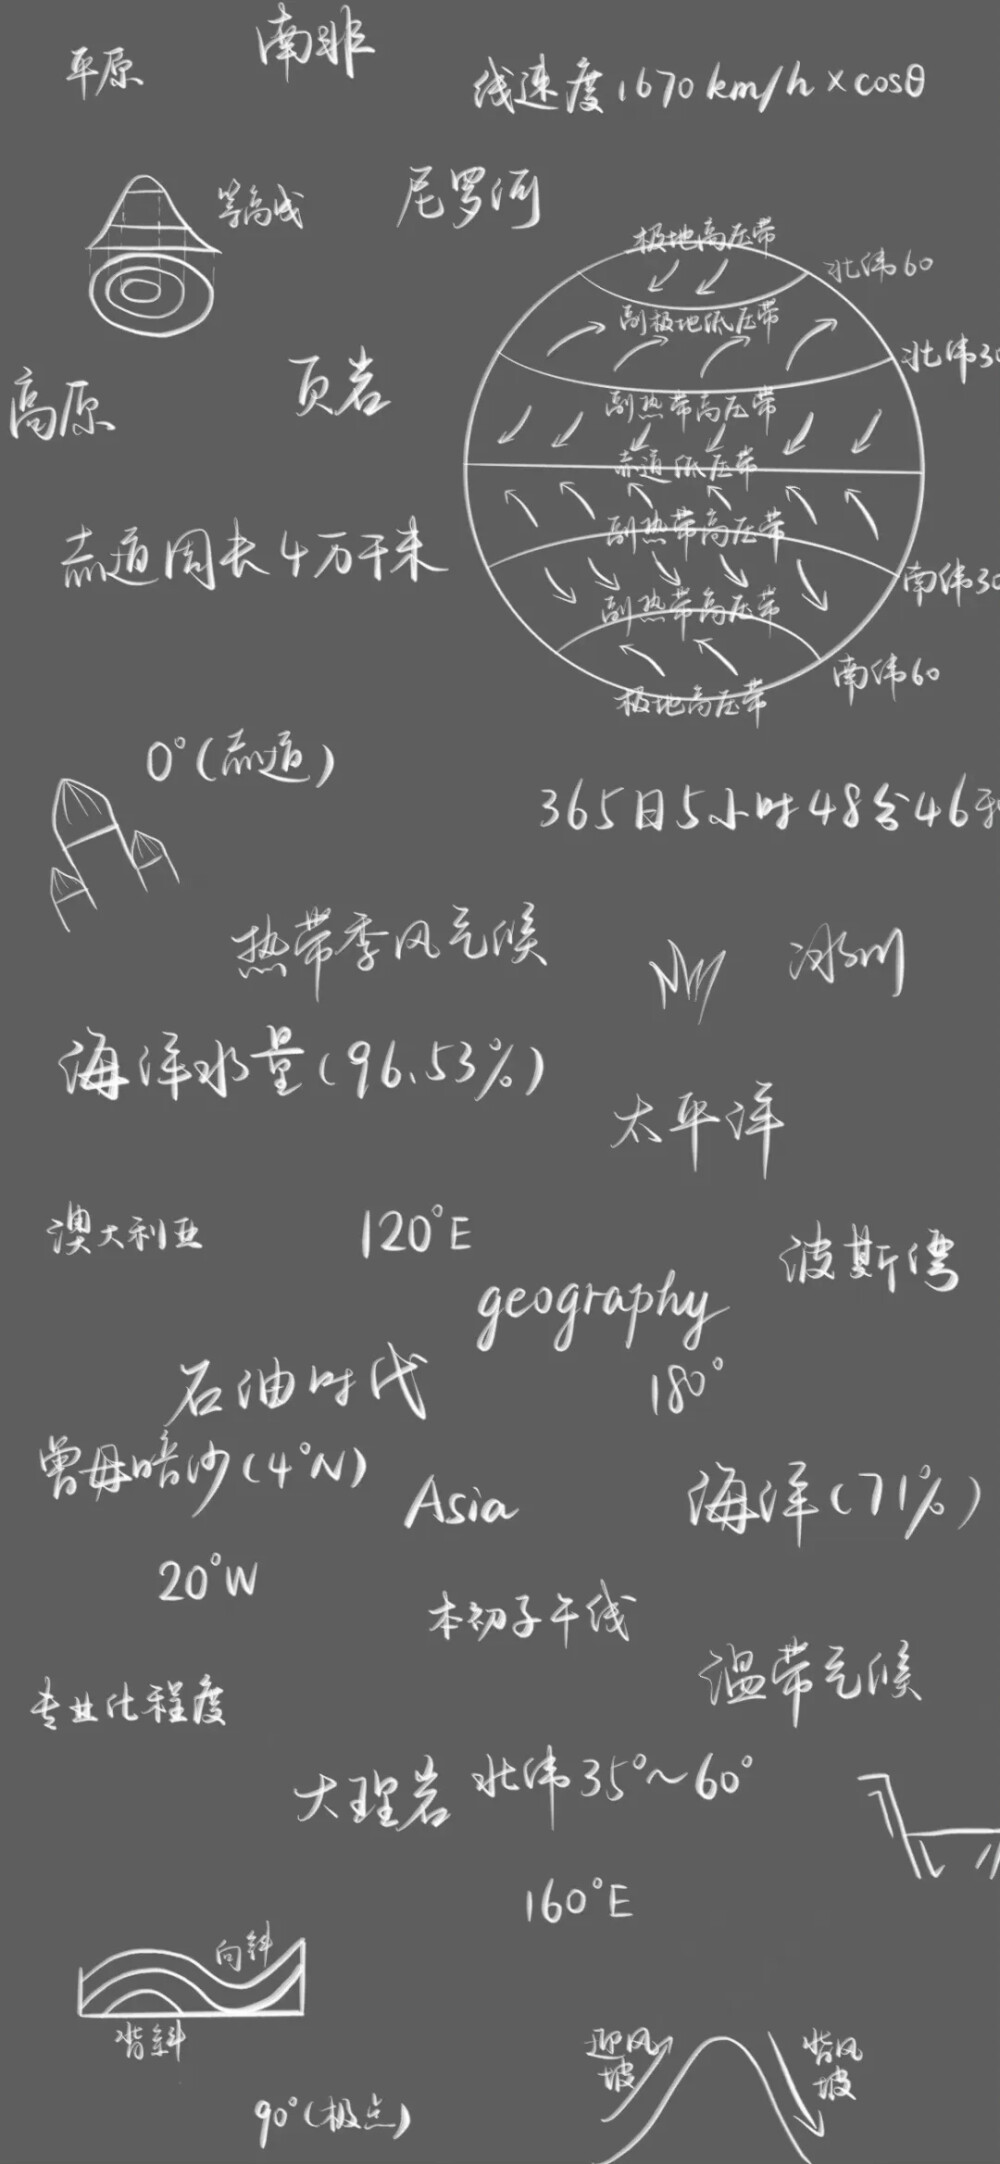 南非
平原
线速度1670km/h×cosθ
等高线
尼罗河
极地高压带
北纬60
副极地低压带
北纬30
页岩
高原
副热带高压带
赤道低压带
赤道周长4万千米
副热带高压带
南纬30
副热带高压带
南纬60
极地高压带
0°(赤道)
365日5小时48分46秒
热带季风气候
冰川
海洋水量(96.53%)
太平洋
澳大利亚
120°E
波斯湾
geography
石油时代
180°
曾母暗沙(4°N)
Asia
海洋(71%)
20°W
本初子午线
温带气候
专业化程度
大理岩
北纬35°~60°
160°E
向斜
背斜
迎风
坡
背风
坡
90°(极点)